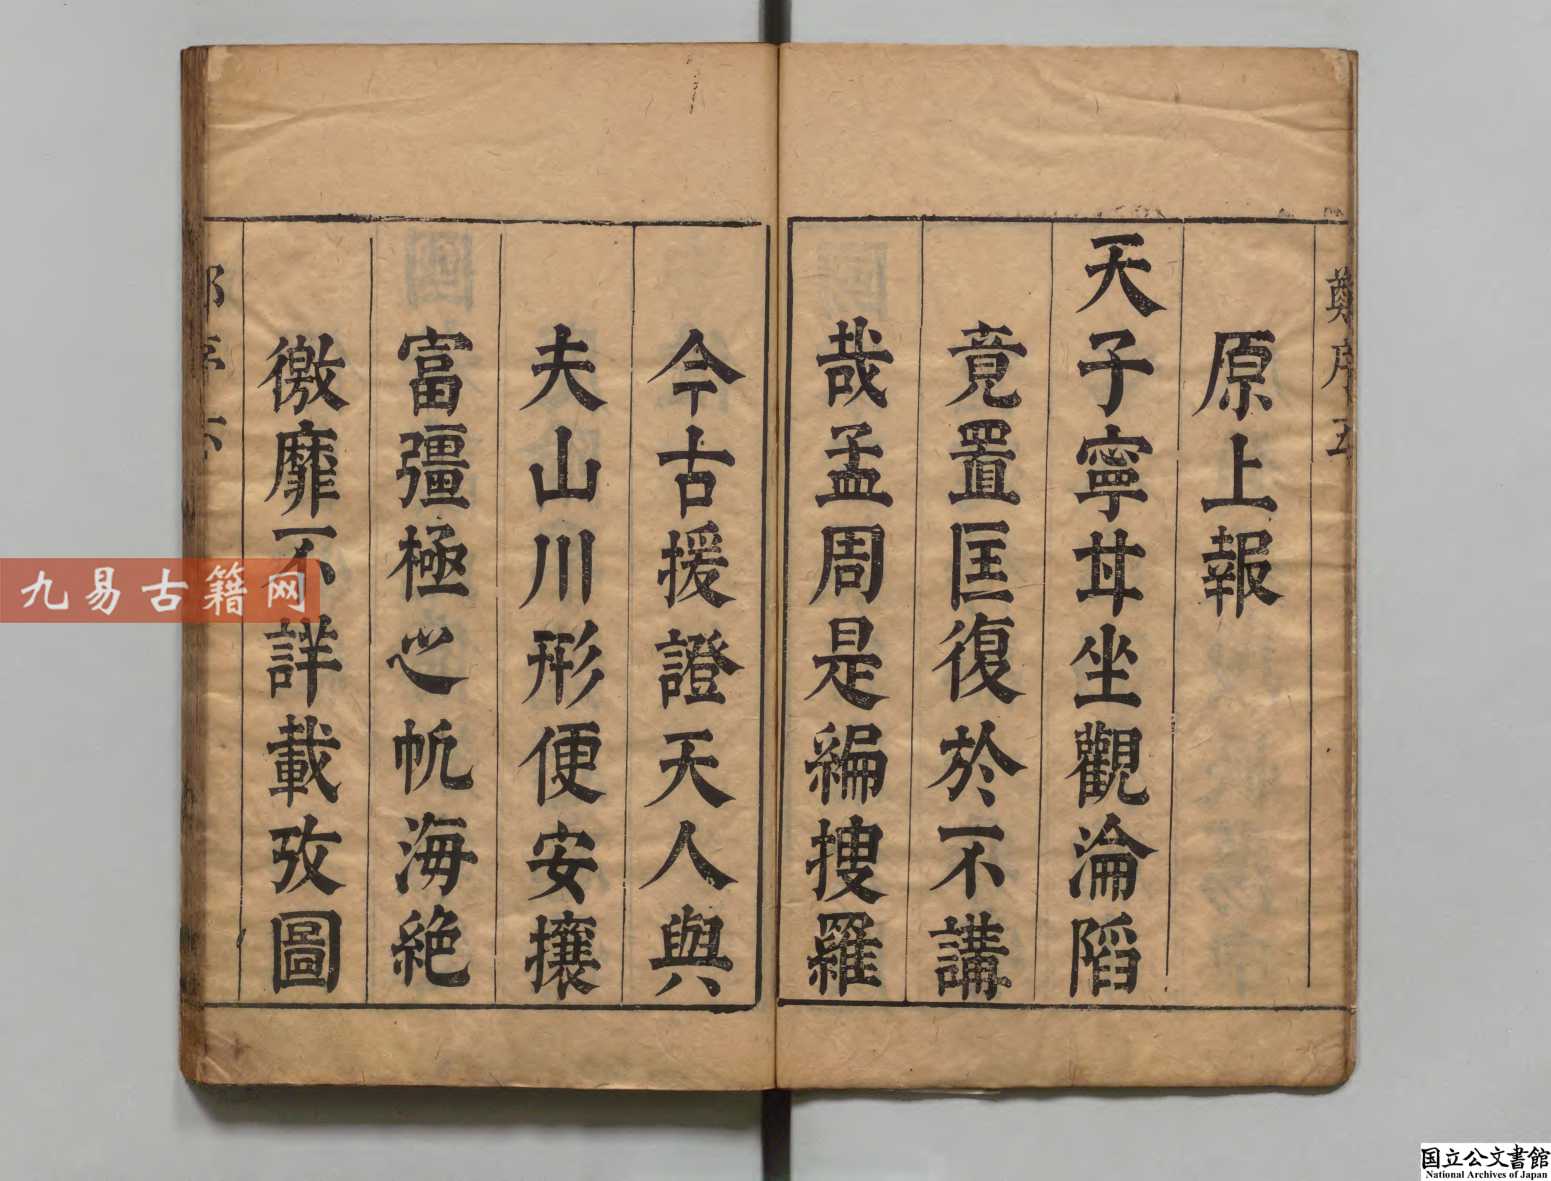 鄭序 五
原上報
天子寧甘坐觀淪陷
竟置匡復於不講
哉孟周是編搜羅
今古援證天人與
夫山川形便安攘
富彊極之帆海絶
徼靡不詳載攷圖
九易古籍网
国立公文書館
National Archives of Japan